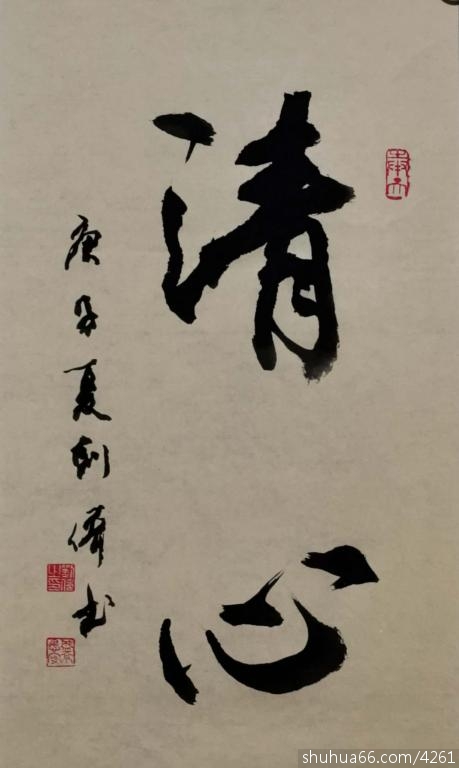 清心
庚子夏刘偉书
shuhua66.com/4261